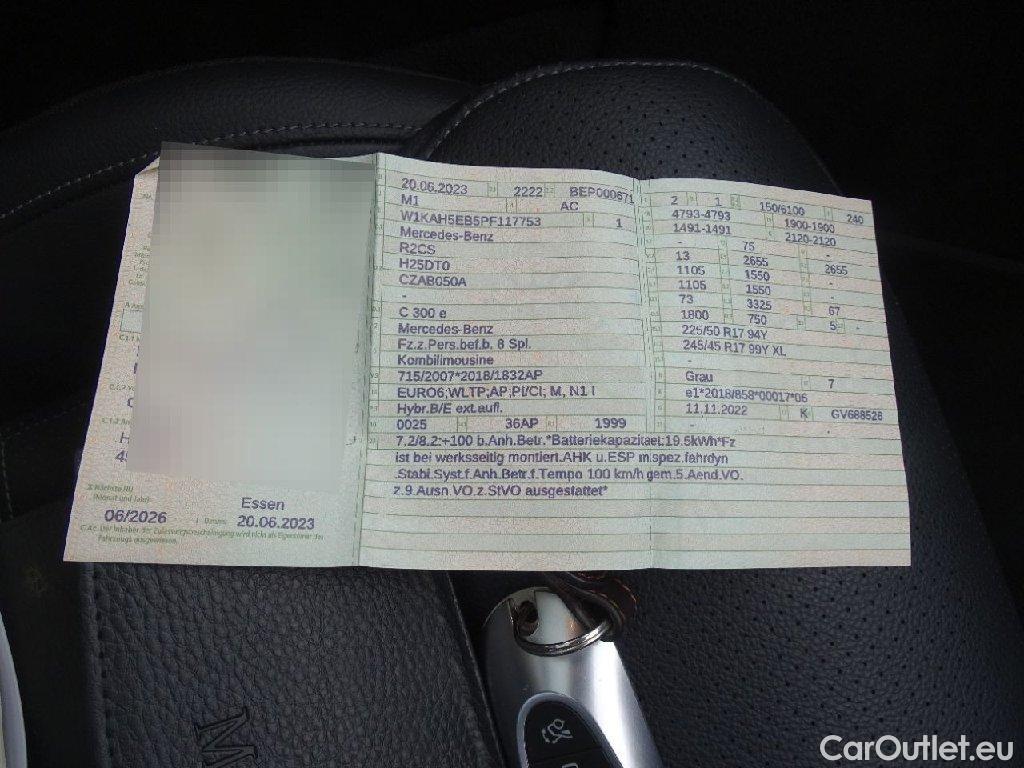 20.06.2023 2222 BEP000671
M1 AC
W1KAH5EB5PF117753 1
Mercedes-Benz
R2CS
H25DT0
CZAB050A
-
C 300 e
Mercedes-Benz
Fz.z.Pers.bef.b. 8 Spl.
Kombilimousine
715/2007*2018/1832AP
EURO6;WLTP;AP;PI/CI; M, N1 I
Hybr.B/E ext.aufl.
0025 36AP 1999
2 1 150/6100 240
4793-4793 1900-1900
1491-1491 2120-2120
- 75 -
13 2655 2655
1105 1550
1105 1550
73 3325 67
1800 750 5 -
225/50 R17 94Y
245/45 R17 99Y XL
-
Grau 7
e1*2018/858*00017*06
11.11.2022 K GV688528
- -
7.2/8.2:+100 b.Anh.Betr.*Batteriekapazitaet:19.5kWh*Fz
ist bei werksseitig montiert.AHK u.ESP m.spez.fahrdyn
.Stabi.Syst.f.Anh.Betr.f.Tempo 100 km/h gem.5.Aend.VO.
z.9.Ausn.VO.z.StVO ausgestattet*
Essen
06/2026 Datum 20.06.2023
C.4c Der Inhaber der Zulassungsbescheinigung wird nicht als Eigentümer des
Fahrzeugs ausgewiesen.
M
CarOutlet.eu